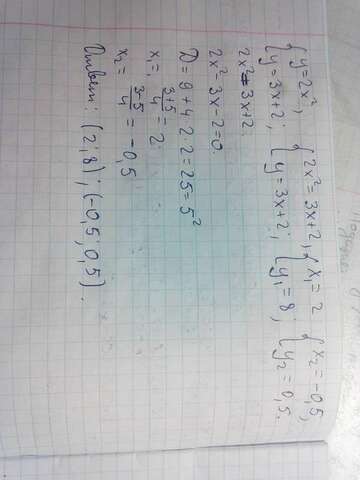 { y=2x², { 2x²=3x+2, { x₁=2 { x₂=-0,5,
{ y=3x+2; { y=3x+2; { y₁=8; { y₂=0,5.
2x²=3x+2.
2x²-3x-2=0.
D=9+4·2·2=25=5²
x₁= (3+5)/4 = 2
x₂= (3-5)/4 = -0,5
Ответ: (2;8); (-0,5; 0,5).